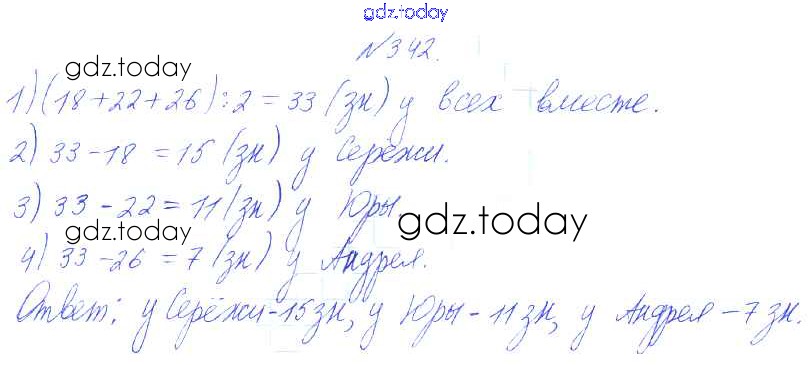 gdz.today
№342.
gdz.today
1) (18+22+26):2=33 (зн) у всех вместе.
2) 33-18=15 (зн) у Серёжи.
3) 33-22=11 (зн) у Юры.
gdz.today gdz.today
4) 33-26=7 (зн) у Андрея.
Ответ: у Серёжи-15зн, у Юры-11зн, у Андрея-7зн.